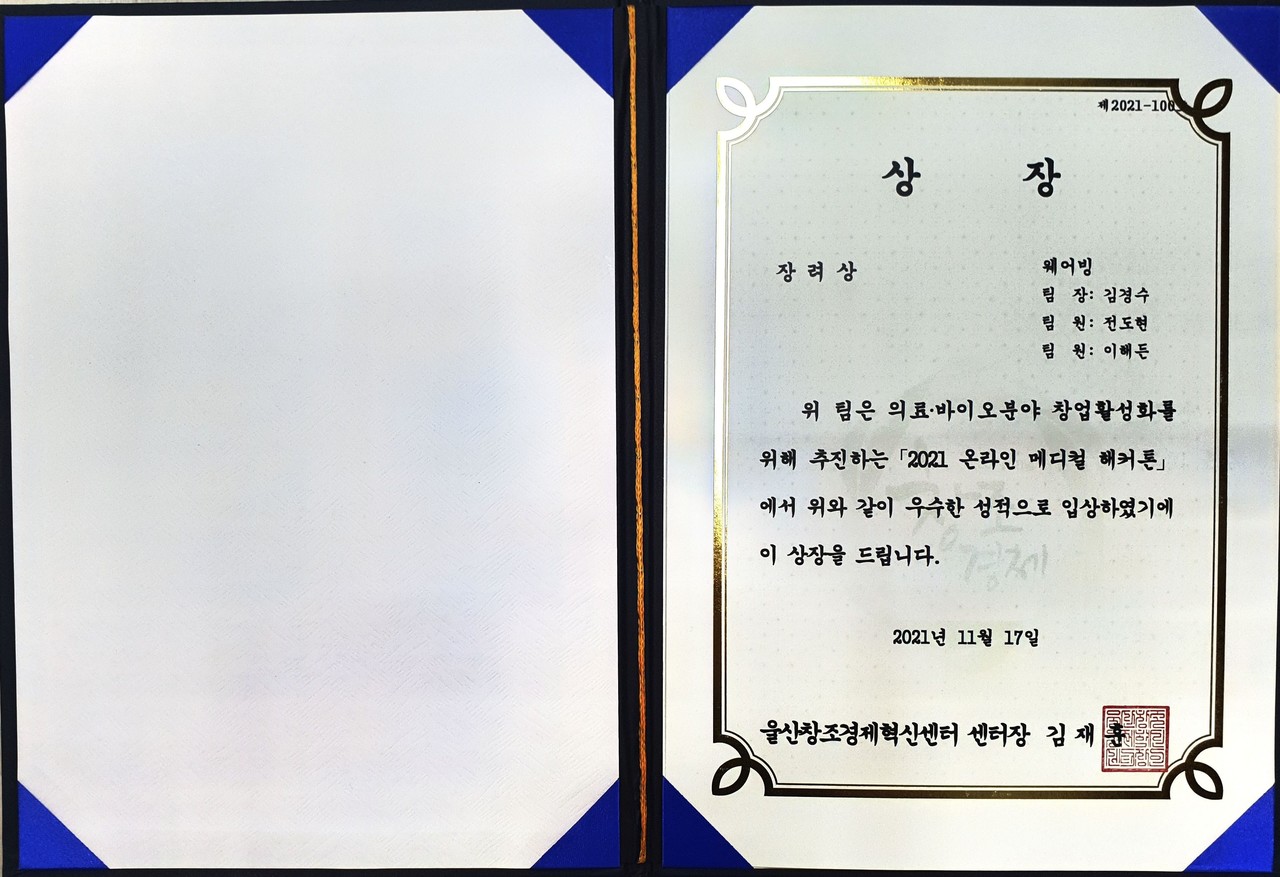 제2021-100
상 장
장 려 상
웨어빙
팀 장: 김경수
팀 원: 전도현
팀 원: 이해든
위 팀은 의료·바이오분야 창업활성화를
위해 추진하는 「2021 온라인 메디컬 해커톤」
에서 위와 같이 우수한 성적으로 입상하였기에
이 상장을 드립니다.
창조
경제
2021년 11월 17일
울산창조경제혁신센터 센터장 김 재 훈